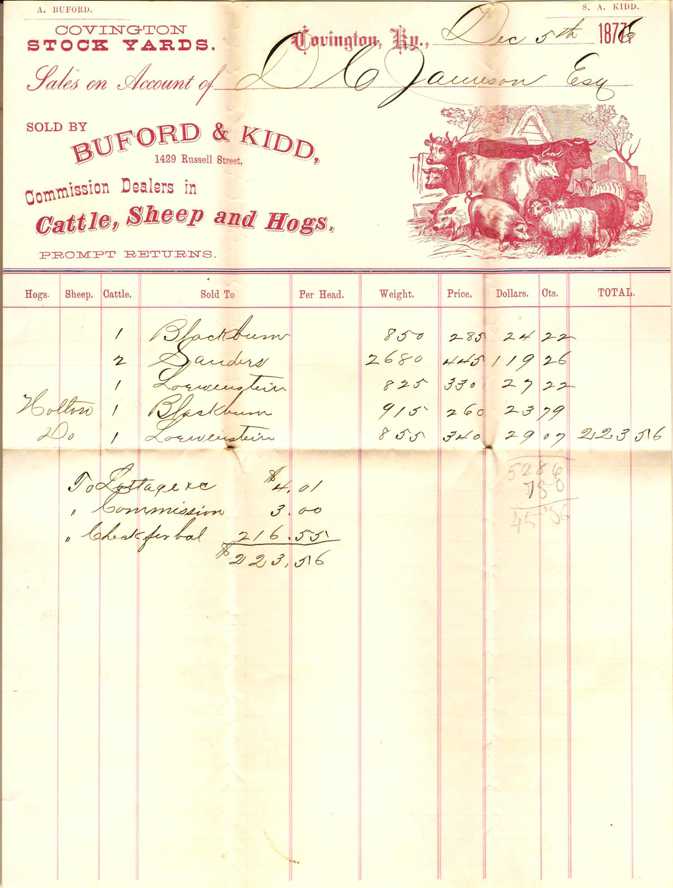 A. BUFORD.
S. A. KIDD.
COVINGTON
STOCK YARDS.
Covington, Ky., Dec 5th 1876
Sales on Account of D C Jameson Esq
SOLD BY
BUFORD & KIDD,
1429 Russell Street,
Commission Dealers in
Cattle, Sheep and Hogs,
PROMPT RETURNS.
Hogs. Sheep. Cattle. Sold To Per Head. Weight. Price. Dollars. Cts. TOTAL.
1 Blackburn 850 285 24 22
2 Sanders 2680 445 119 26
1 Loewenstein 825 330 27 22
Holton 1 Blackburn 915 260 23 79
Do 1 Loewenstein 855 340 29 07 223 56
To &c $4.01
5286
" Commission 3.00
780
" Check for bal 216.55
$223.56